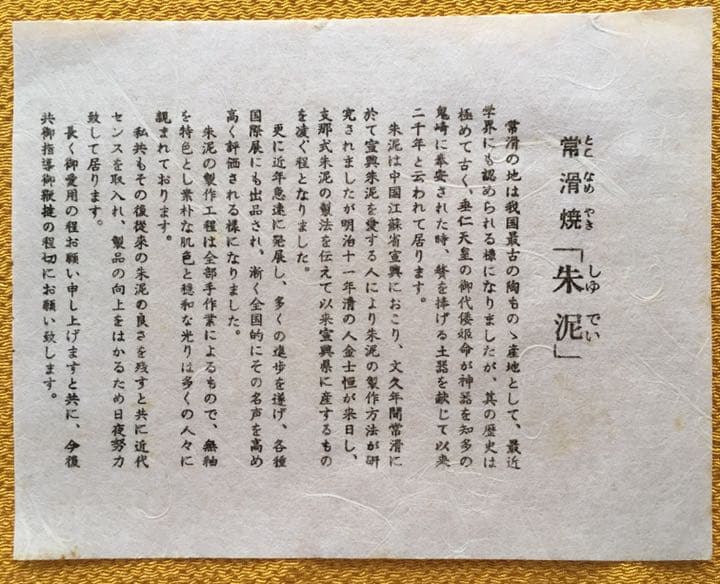 常滑焼「朱泥」
とこ なめ やき しゆ でい
常滑の地は我国最古の陶ものゝ産地として、最近
学界にも認められる様になりましたが、其の歴史は
極めて古く、垂仁天皇の御代倭姫命が神器を知多の
鬼崎に奉安された時、贄を捧げる土器を献じて以来
二千年と云われて居ります。
朱泥は中国江蘇省宜興におこり、文久年間常滑に
於て宜興朱泥を愛する人により朱泥の製作方法が研
究されましたが明治十一年清の人金士恒が来日し、
支那式朱泥の製法を伝えて以来宜興県に産するもの
を凌ぐ程となりました。
更に近年急速に発展し、多くの進歩を遂げ、各種
国際展にも出品され、漸く全国的にその名声を高め
高く評価される様になりました。
朱泥の製作工程は全部手作業によるもので、無釉
を特色とし素朴な肌色と穏和な光りは多くの人々に
親まれております。
私共もその後従来の朱泥の良さを残すと共に近代
センスを取入れ、製品の向上をはかるため日夜努力
致して居ります。
長く御愛用の程お願い申し上げますと共に、今後
共御指導御鞭撻の程切にお願い致します。